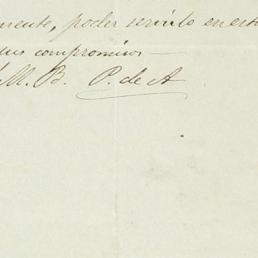 mente, poder servirlo en este
sus compromisos —
M. B. P. de A